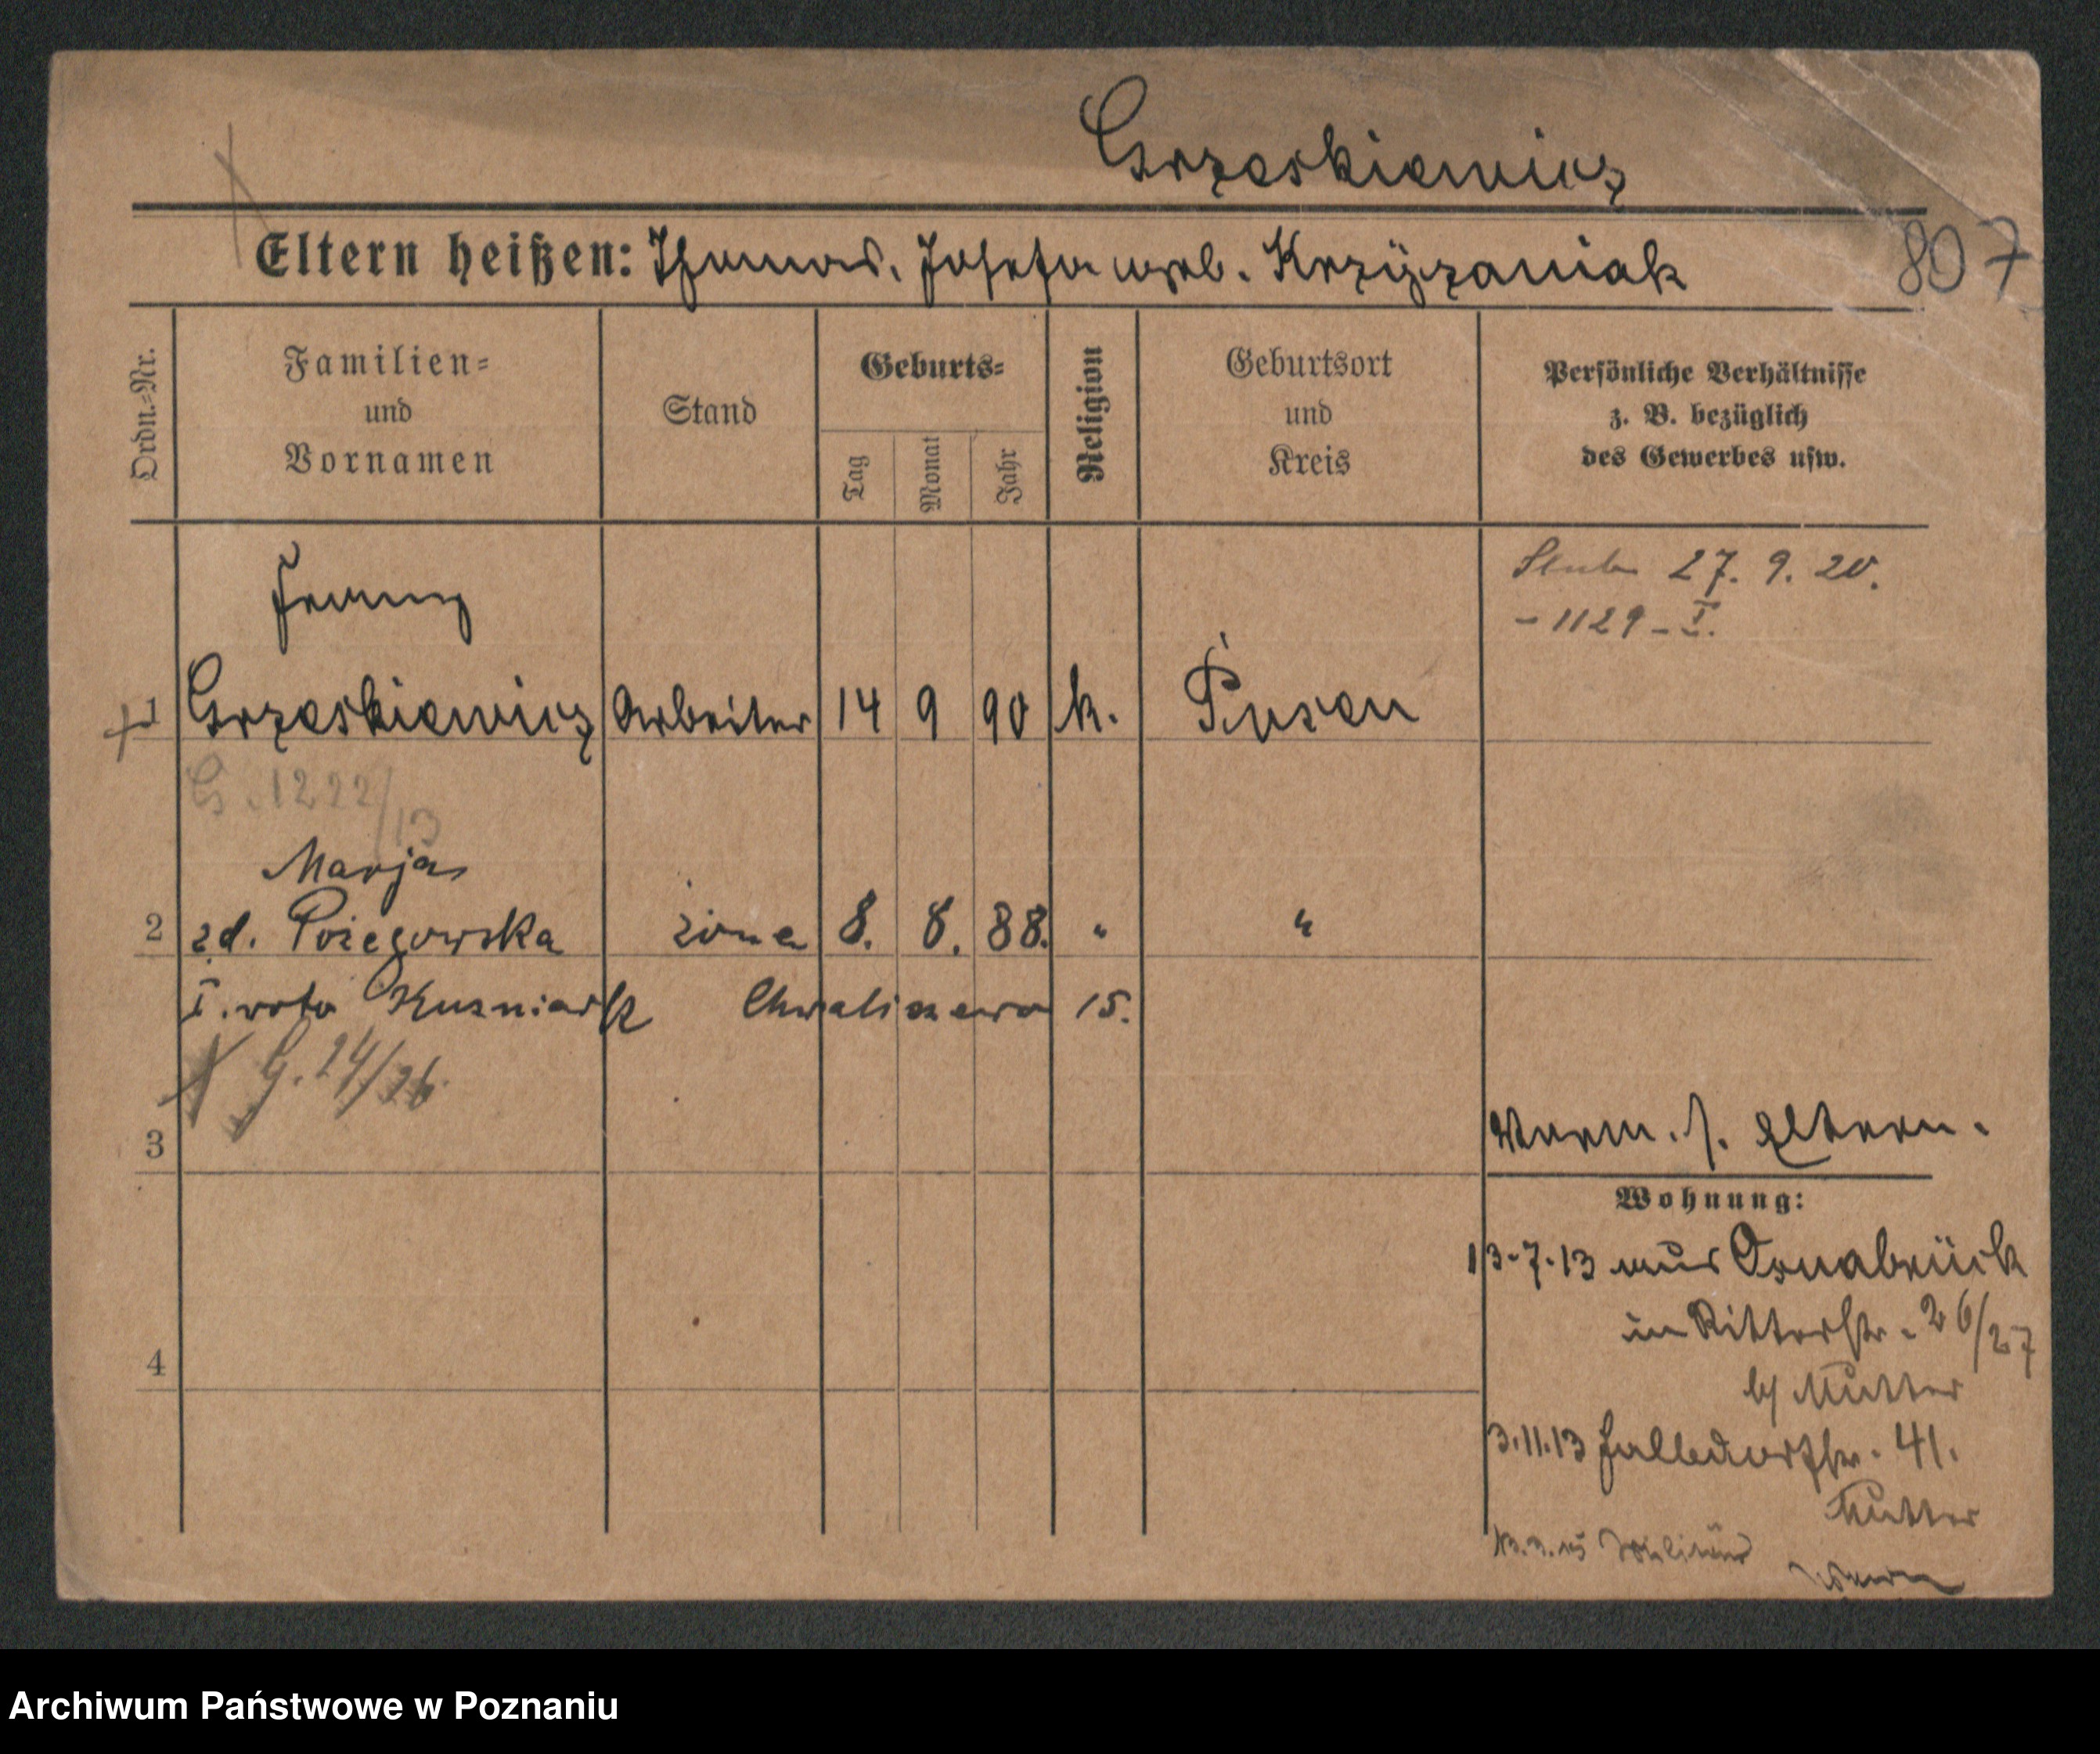 Grzeskiewicz
Eltern heißen: Thomas. Josefa geb. Krzyżaniak
807
Ordn.-Nr.
Familien- und Vornamen
Stand
Geburts-
Tag
Monat
Jahr
Religion
Geburtsort und Kreis
Persönliche Verhältnisse
z. B. bezüglich
des Gewerbes usw.
27. 9. 20.
- 1129 - I.
Franz
1 Grzeskiewicz Arbeiter 14 9 90 k. Posen
G. 1222/13
Marja
2 zd. żona 8. 8. 88. " "
I. voto Kuzniak Chwaliszewo 15.
G. 24/26
3
s. Eltern.
Wohnung:
13.7.13 aus Osnabrück
in Ritterstr. 26/27
b/ Mutter
4
3.11.13 41.
Mutter
Archiwum Państwowe w Poznaniu